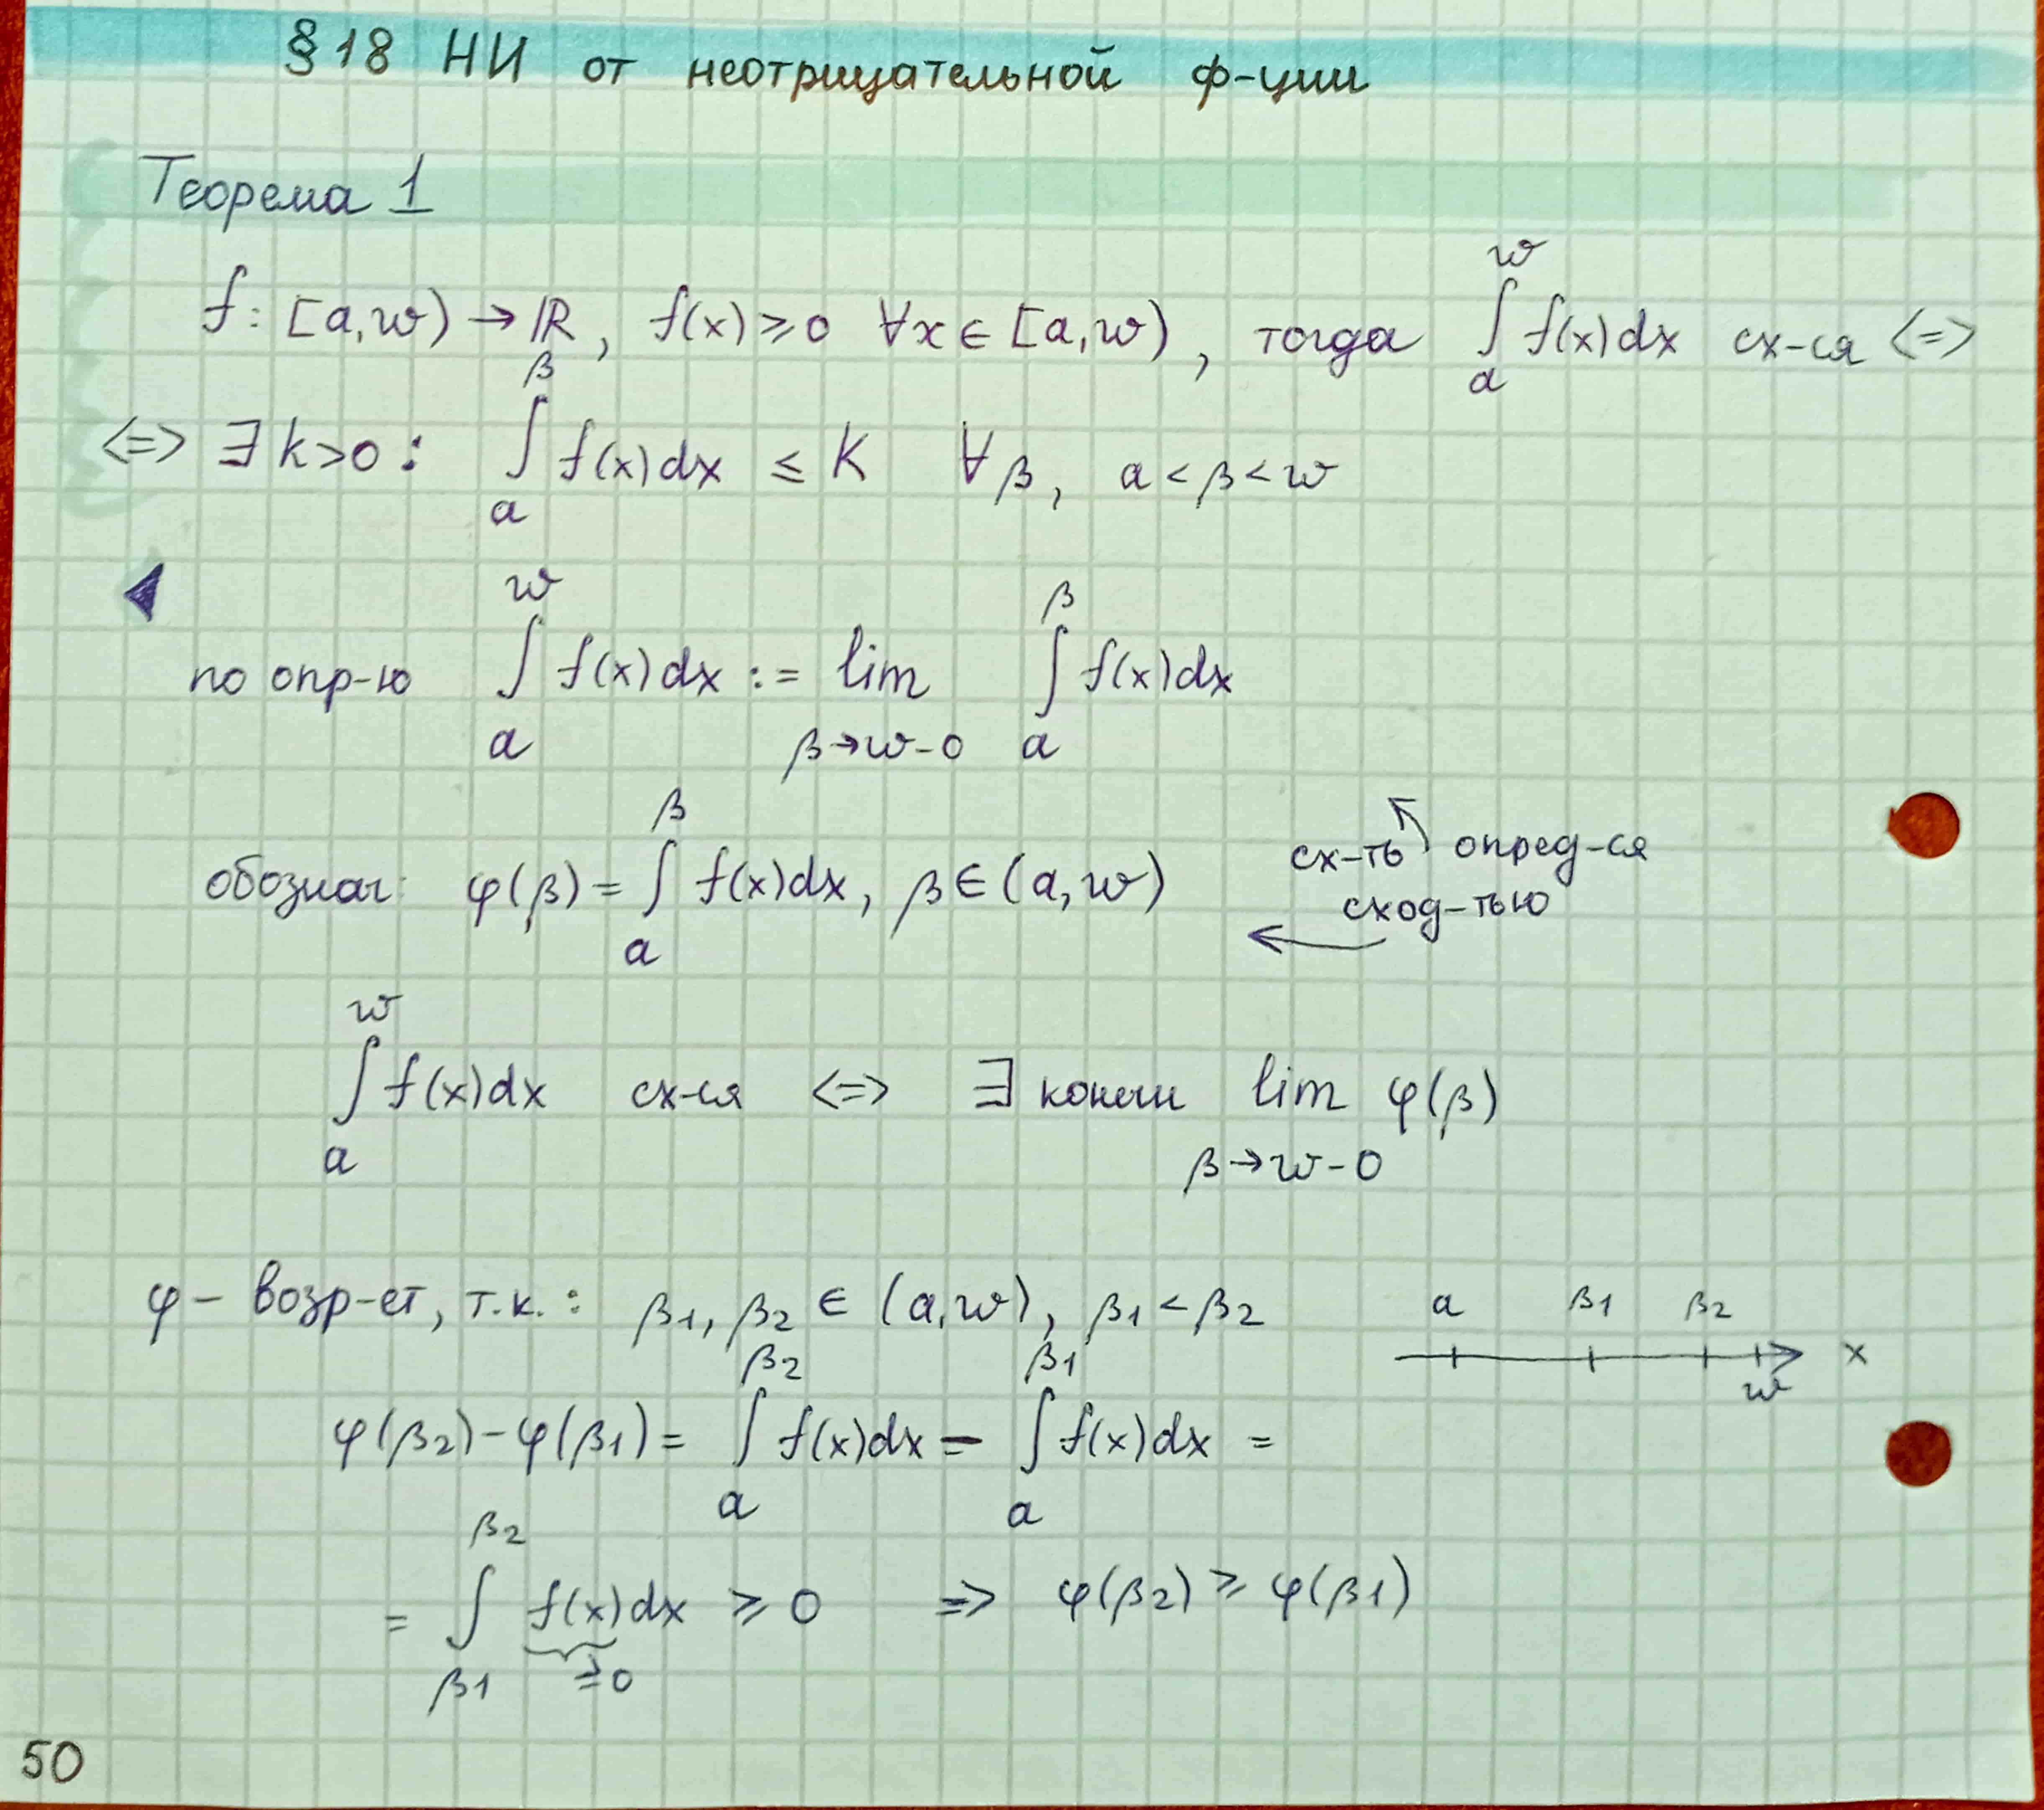 §18 НИ от неотрицательной ф-ции
Теорема 1
f: [a,w) → ℝ, f(x) ≥ 0 ∀x ∈ [a,w), тогда ∫_a^w f(x)dx сх-ся <=>
<=> ∃ k>0 : ∫_a^β f(x)dx ≤ K ∀β, a < β < w
◀
по опр-ю ∫_a^w f(x)dx := lim_{β→w-0} ∫_a^β f(x)dx
обознач: φ(β) = ∫_a^β f(x)dx, β ∈ (a,w)
сх-ть опред-ся
сход-тью
∫_a^w f(x)dx сх-ся <=> ∃ конечн lim_{β→w-0} φ(β)
φ – возр-ет, т.к.: β1, β2 ∈ (a,w), β1 < β2
a β1 β2 w x
φ(β2) - φ(β1) = ∫_a^{β2} f(x)dx - ∫_a^{β1} f(x)dx =
= ∫_{β1}^{β2} f(x)dx ≥ 0 => φ(β2) ≥ φ(β1)
≥0
50